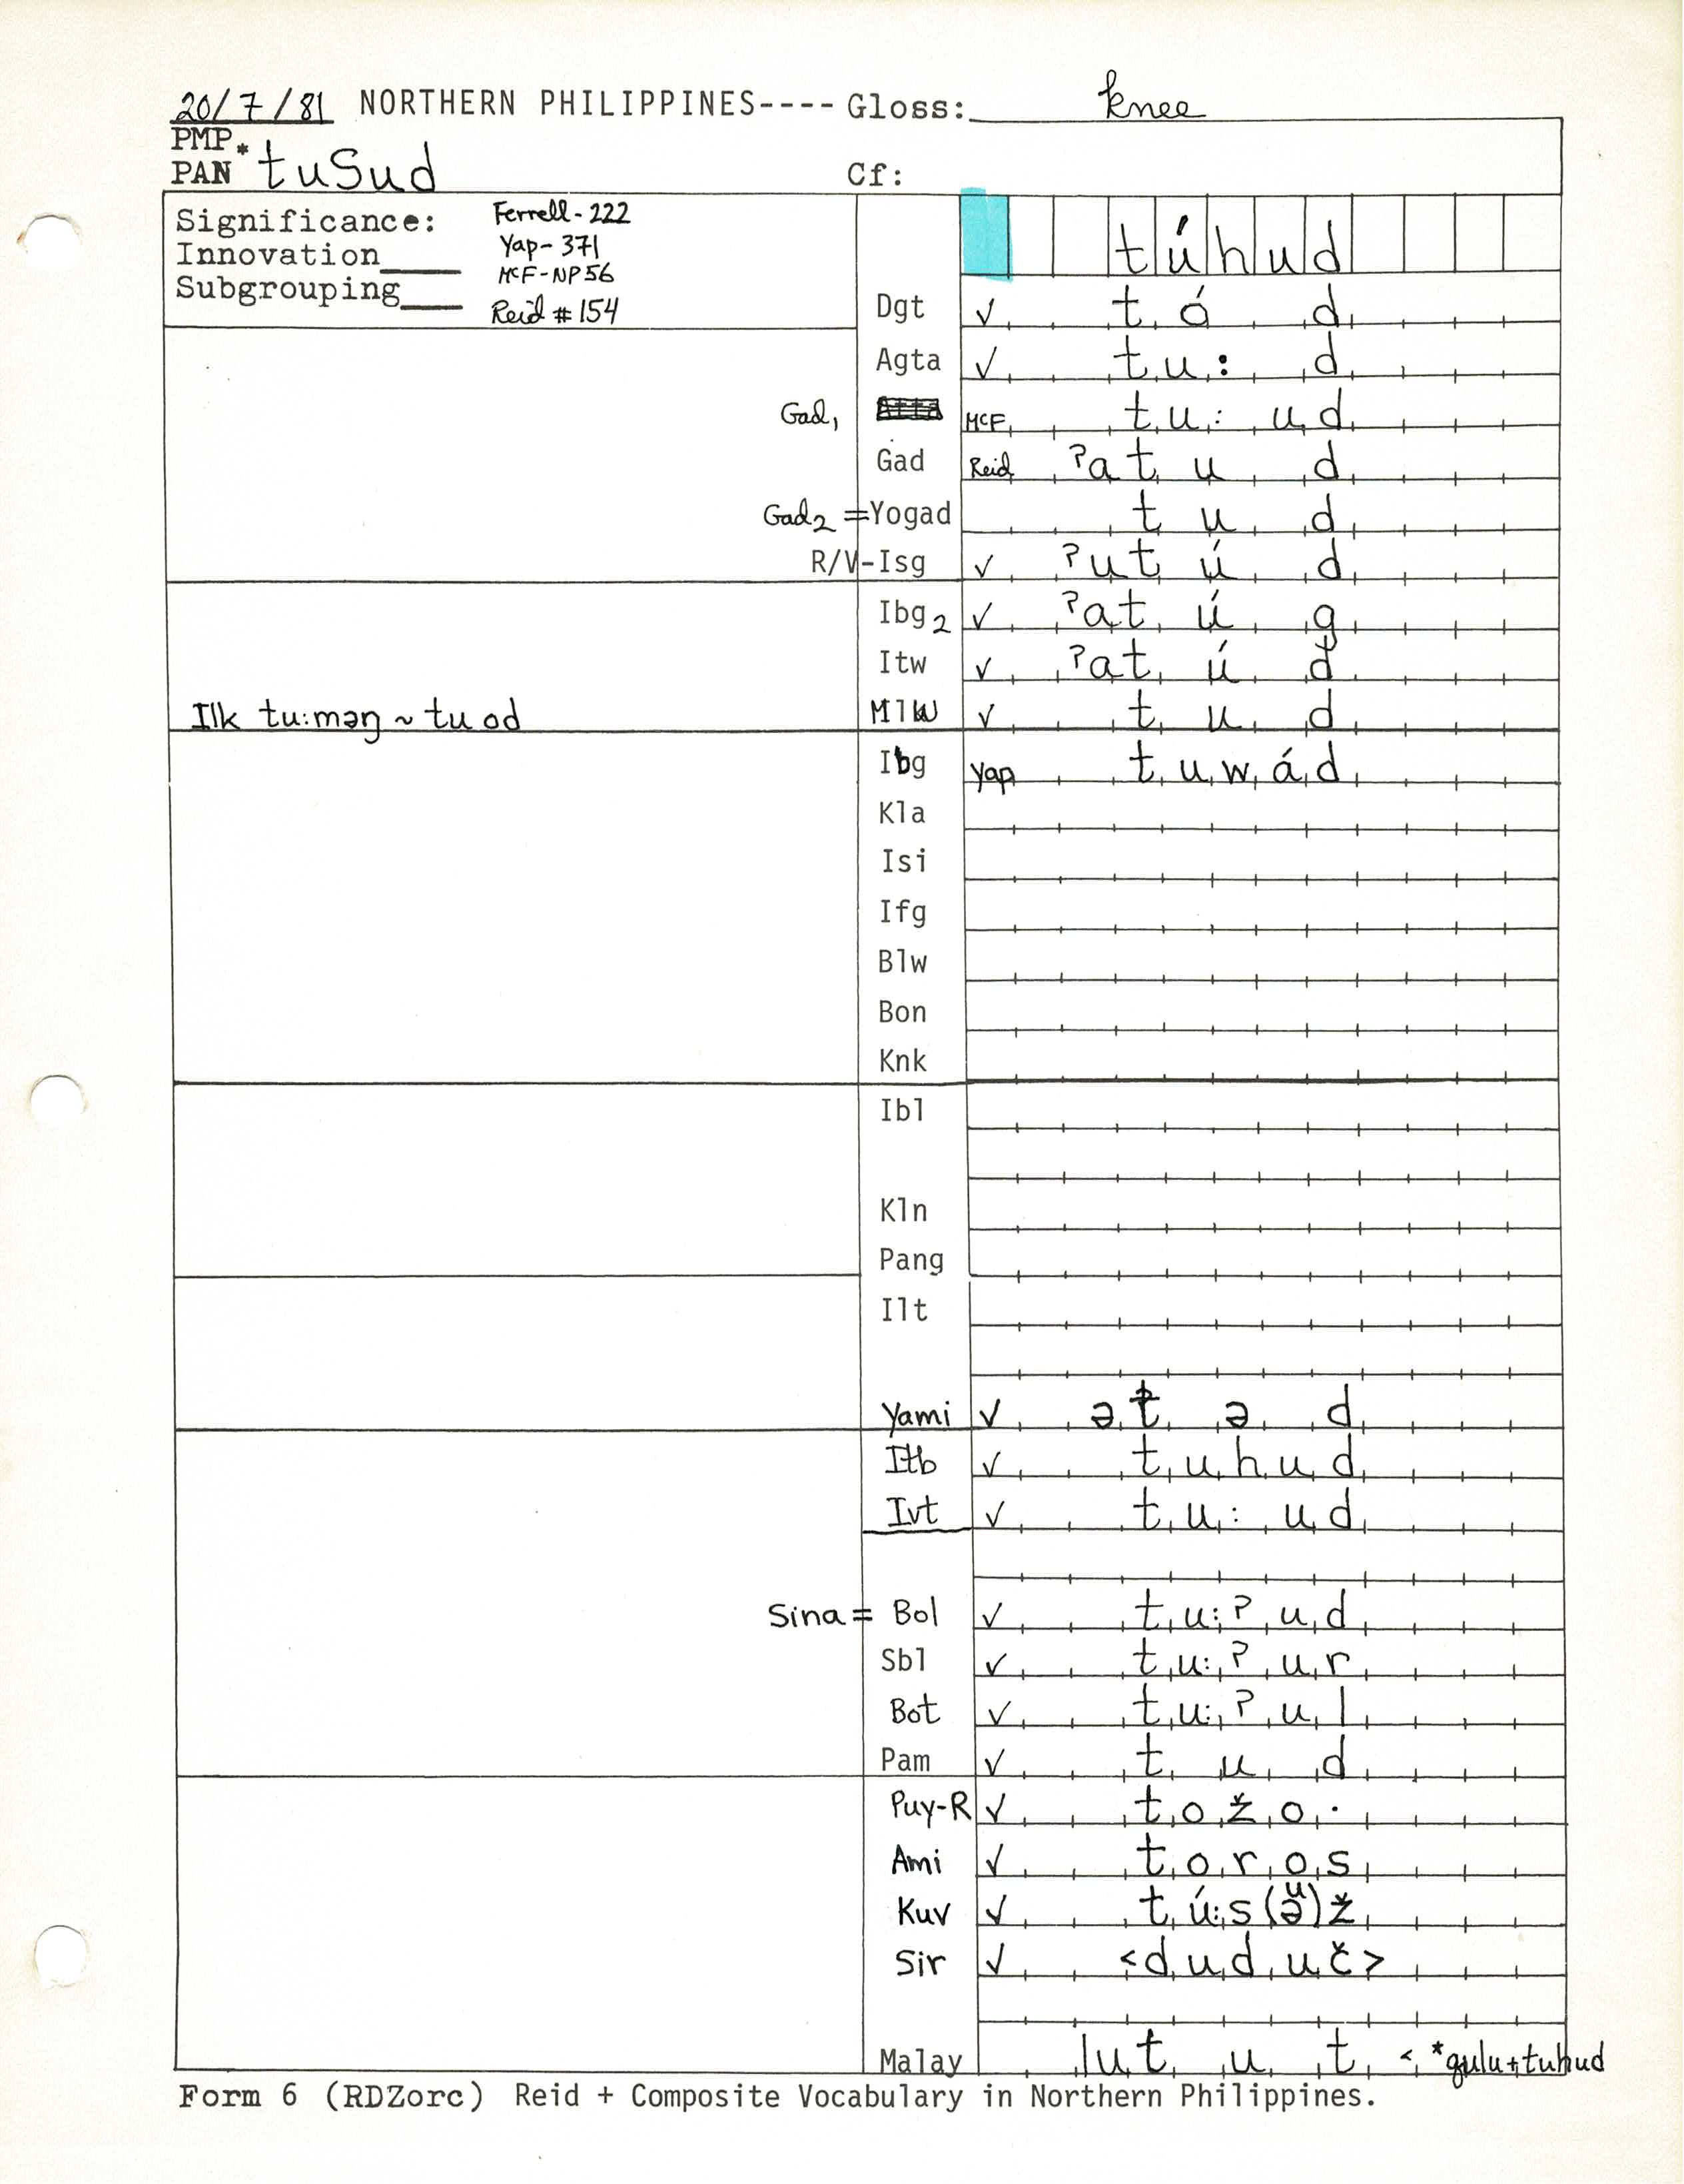 20/7/81 NORTHERN PHILIPPINES---- Gloss: knee
PMP *
PAN tuSud Cf:
Significance: Ferrell-222
Innovation____ Yap-371
McF-NP56
Subgrouping____ Reid #154
túhud
Dgt ✓ tó d
Agta ✓ tu: d
Gad1 McF tu: ud
Gad Reid ʔatu d
Gad2 =Yogad tu d
R/V-Isg ✓ ʔutú d
Ibg2 ✓ ʔatú g
Itw ✓ ʔatú d
Ilk tu:məŋ ~ tuod MlW ✓ tu d
Ibg Yap tuwád
Kla
Isi
Ifg
Blw
Bon
Knk
Ibl
Kln
Pang
Ilt
Yami ✓ ətə d
Itb ✓ tuhud
Ivt ✓ tu: ud
Sina = Bol ✓ tu:ʔud
Sbl ✓ tu:ʔur
Bot ✓ tu:ʔul
Pam ✓ tu d
Puy-R ✓ tožo·
Ami ✓ toros
Kuv ✓ tú:s(ə̆)ž
Sir ✓ <duduč>
Malay lutut < *qulu+tuhud
Form 6 (RDZorc) Reid + Composite Vocabulary in Northern Philippines.